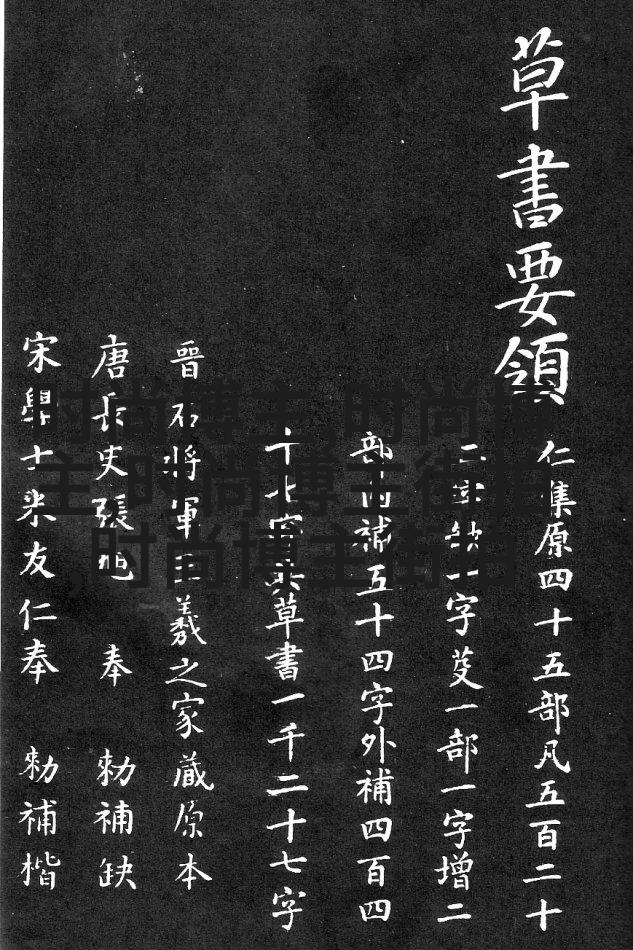 草書要領
仁集原四十五部凡五百二十
二字缺一字芟一部一字增二
部内補五十四字外補四百四
十七字共草書一千二十七字
晉右將軍王羲之家藏原本
唐長史張旭 奉 勑補缺
宋學士米友仁奉 勑補楷
时尚博主,时尚博
主,时尚博主街拍
,时尚博主街拍